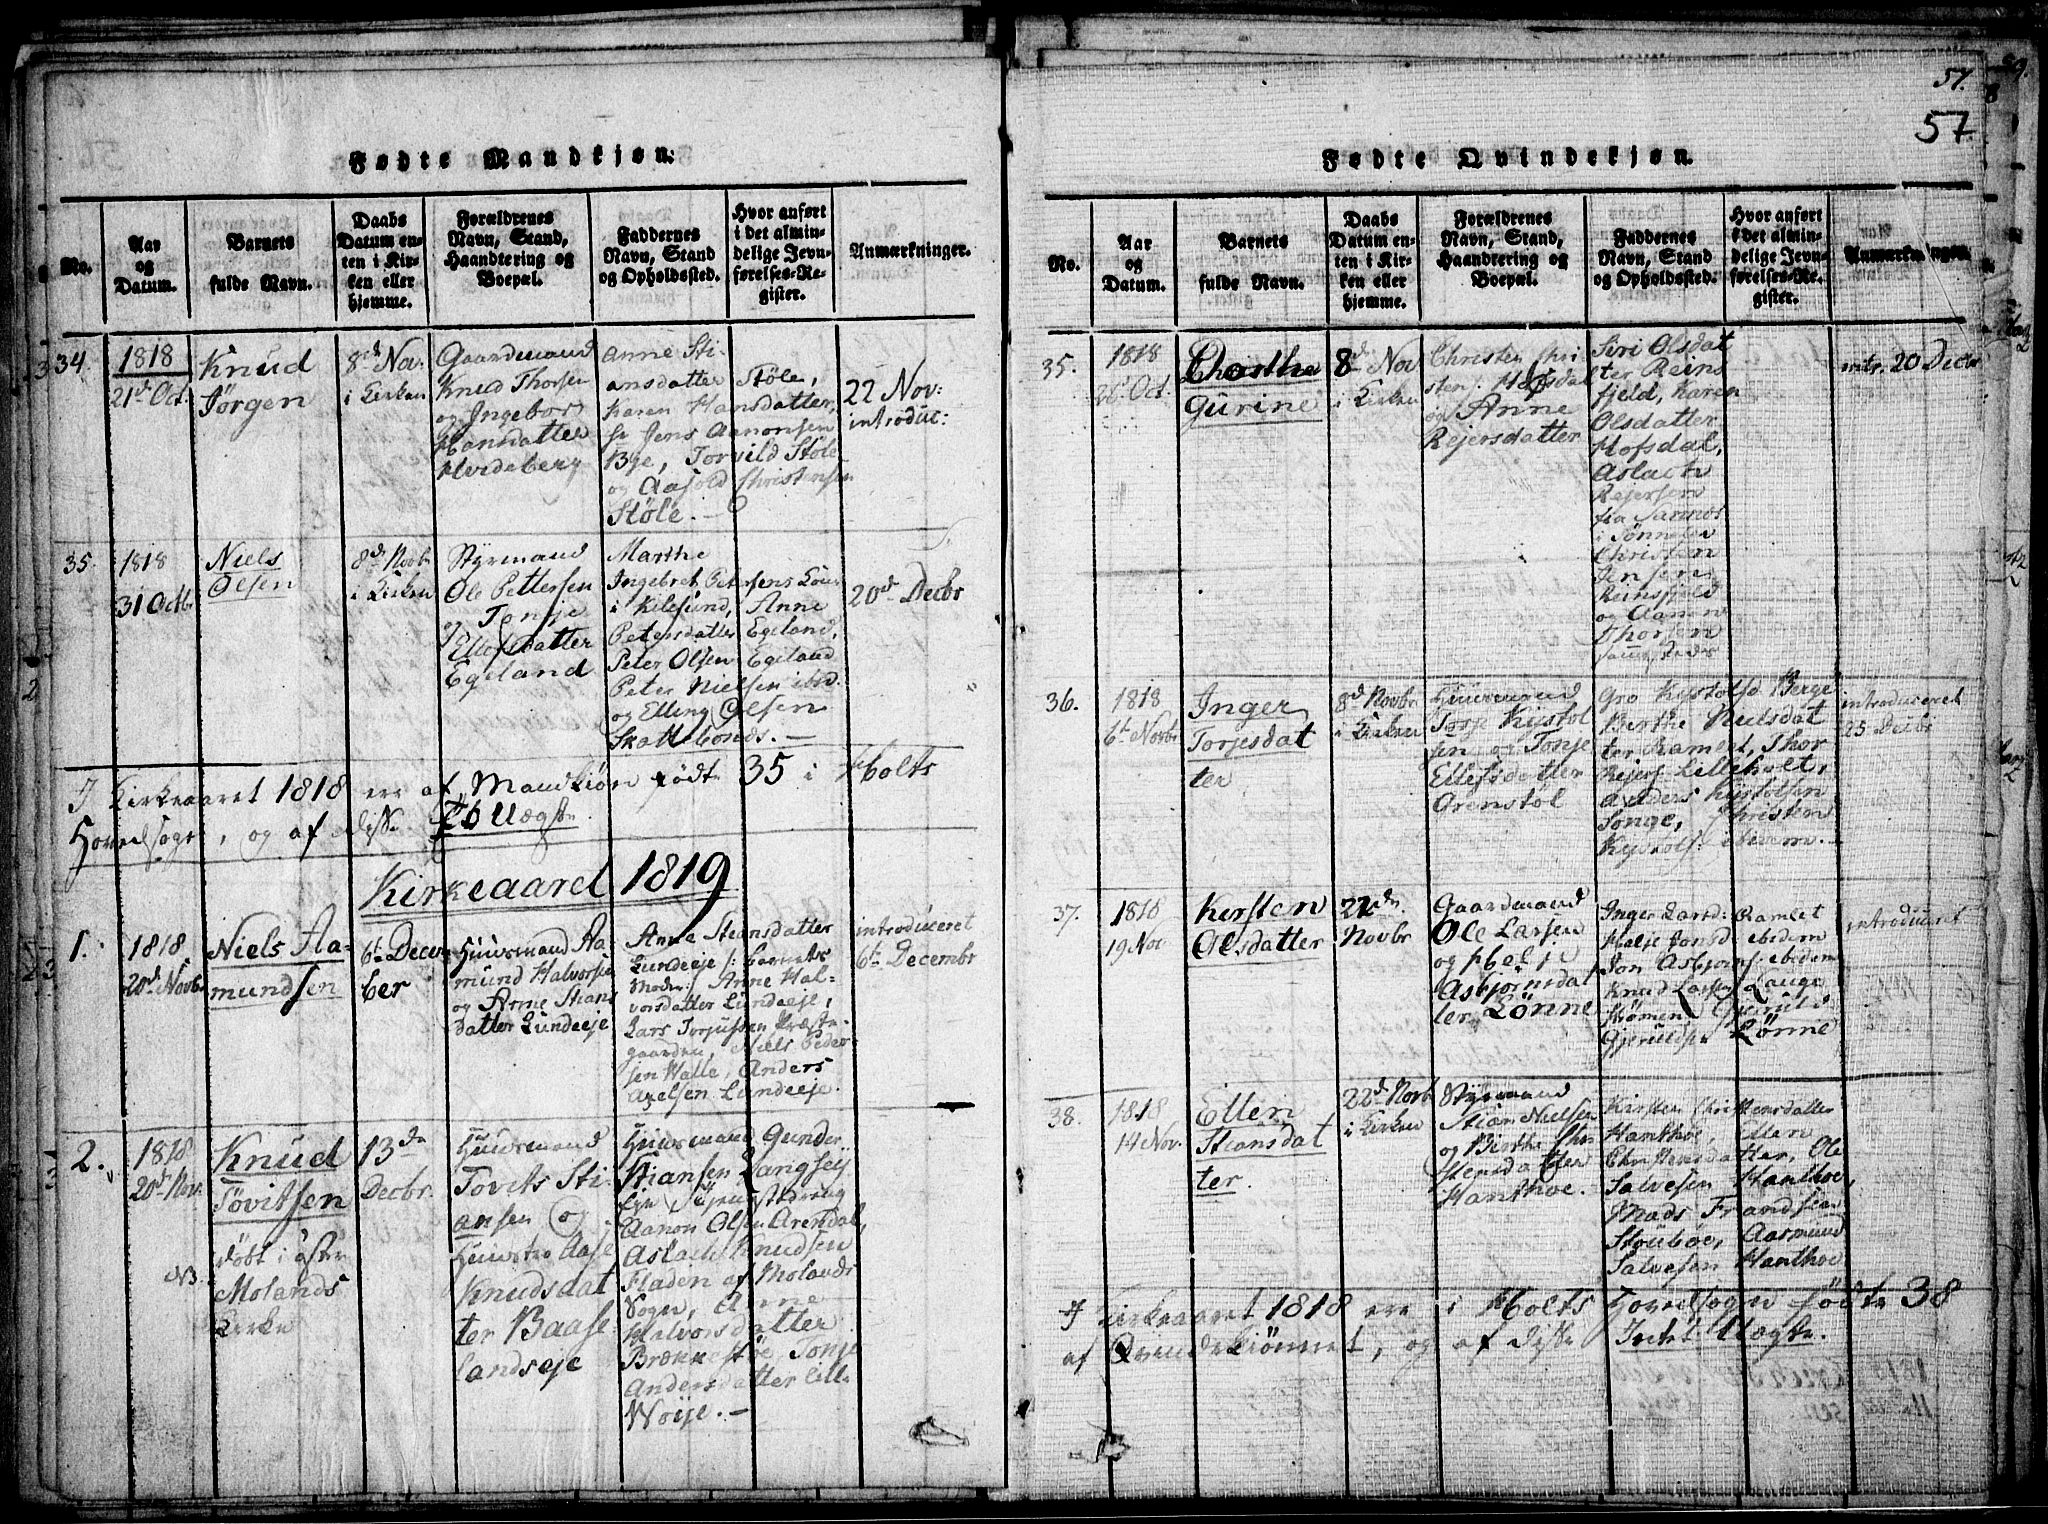 57.
57
Fødte Mandkjøn:
No.
Aar og Datum.
Barnets fulde Navn.
Daabs Datum enten i Kirken eller hjemme.
Forældrenes Navn, Stand, Haandtering og Boepæl.
Faddernes Navn, Stand og Opholdssted.
Hvor anført i det almindelige Jevnførelses-Register.
Anmærkninger.
34.
1818
21de Oct:
Knud
Jörgen
8de Nov:
i Kirken
Gaardmand
Knud Thorsen
og Ingebor
Hansdatter
Hvideberg
Anne Sti-
ansdatter Stöle,
Karen Hansdatter,
Jens Aanonsen
Bye, Torvild Stöle
og Aasold Christensen
Stöle.—
22 Nov:
introduc:
35.
1818
31 Octbr
Niels
Olsen
8de Novbr
i Kirken
Styrmand
Ole Pettersen
og Tonje
Ellefsdatter
Egeland
Marthe
Ingebret Petersens Kone
i Kilesund, Anne
Petersdatter Egeland,
Peter Olsen Egeland
Peter Nielsen ibid.
og Elling Olsen
Skattebonds.—
20de Decbr
I Kirkeaaret 1818 ere af Mandkiön födte 35 i Holts
Hovedsogn, og af disse Uægte.
Kirkeaaret 1819
1.
1818
20de Novbr
Niels Aa-
mundsen
6te Decem-
ber
Huusmand Aa-
mund Halvorsen
og Anne Stians
datter Lundeeje
Anne Stiansdatter
Lundeeje /: barnets
Moder:/ Anne Hal-
vorsdatter Lundeeje,
Lars Torjussen Præste-
gaarden, Niels Peder-
sen Walle, Anders
Axelsen Lundeeje.
introduceret
6te Decembr
2.
1818
20de Nov.
Knud
Tövitsen
döbt i Öster
NB. Molands
Kirke
13de
Decbr.
Huusmand
Tovits Sti-
ansen og
Hustro Aase
Knudsdat
ter Baase
landseje
Huusmand Gunder
Stiansen Langsej
Eje,
Aanon Olsen Arendal,
Aslach Knudsen
Fladen af Molands
Sogn, Anne
Halvorsdatter
Brækkestöe Tonje
Andersdatter Lille
Woije.—
Fødte Qvindekjøn.
No.
Aar og Datum.
Barnets fulde Navn.
Daabs Datum enten i Kirken eller hjemme.
Forældrenes Navn, Stand, Haandtering og Boepæl.
Faddernes Navn, Stand og Opholdssted.
Hvor anført i det almindelige Jevnførelses-Register.
Anmærkninger.
35.
1818
Oct.
Dorthe
Gurine
8de Nov
i Kirken
Christen Chri
stens: Hofsdal
og Anne
Rejersdatter
Siri Olsdat
ter Reins
fjeld, Karen
Olsdatter
Hofsdal,
Aslach
Rejersen
fra Sannes
i Tönne
Christen
Jensen
Reinsfjeld
og Aanon
Thorsen
sammesteds
intr. 20 Decbr
36.
1818
6te Novbr
Inger
Torjesdat
ter
8de Novbr
i Kirken
Huusmand
Torje Kjystol
sen og Tonje
Ellefsdatter
Grenstöl
Gro Kjystolsd Berge
Berthe Neilsdat
ter Ramlet, Thor
Rejers: Lilleholt,
Anders Kjystolsen
Songe, Christen
Kjystols: ibidem.—
introduceret
25 Decbr
37.
1818
19 Nov
Kersten
Olsdatter
22de
Novbr
Gaardmand
Ole Larsen
og Helje
Asbjörnsdat
ter Lönne
Inger Larsd: Ramlet
Helje Jonsd ibidem
Jon Asbjörns: ibidem
Knud Larsen Lauge
Strömen, Gjeruld
Gjeruldsen Lönne
introduceret
38.
1818
14 Nov.
Ellen
Stiansdat
ter.
22de Novbr
i Kirken
Styrmand
Stian Nielsen
og Birthe Chri
stensdatter
Hanthoe.
Kirsten Christensdatter
Hanthoe, Ellen
Christensdatter, Ole
Salvesen Hanthoe,
Mads Frandsen
Stoeböe, Aasmund
Salvesen Hanthoe
I Kirkeaaret 1818 ere i Holts Hovedsogn födte 38
af Qvindekiönnet, og af disse Intet Uægte.